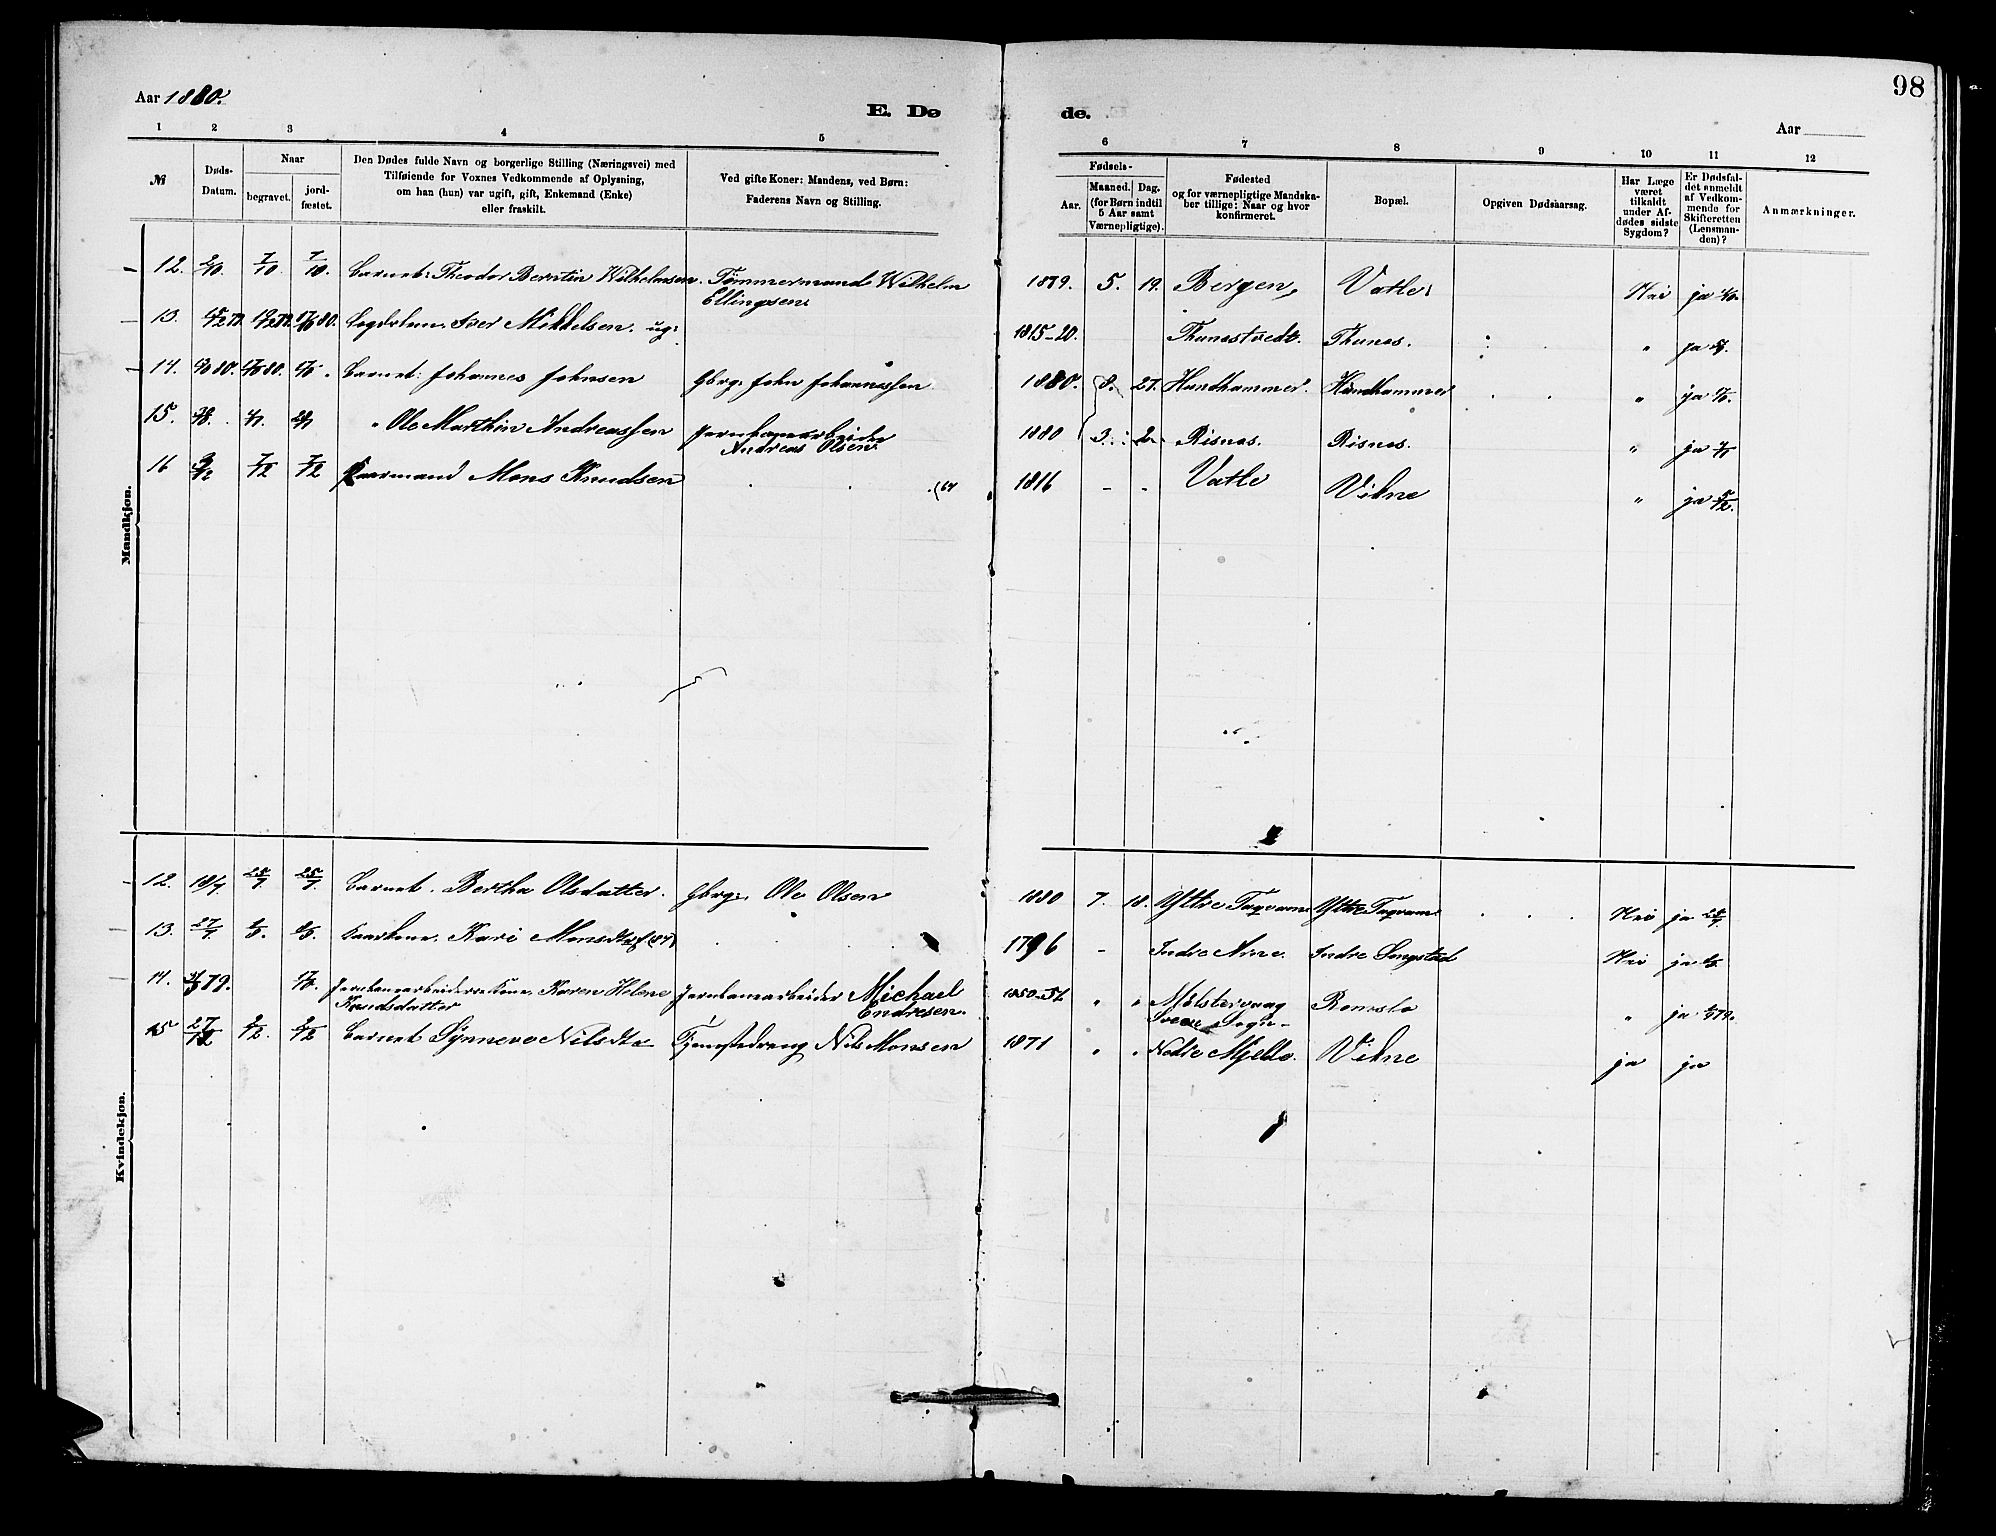 98
Aar 1880.
E. Dø
de.
Aar
1 2 3 4 5
6 7 8 9 10 11 12
№
Døds-
Datum.
Naar
begravet.
jord-
fæstet.
Den Dødes fulde Navn og borgerlige Stilling (Næringsvei) med
Tilføiende for Voxnes Vedkommende af Oplysning,
om han (hun) var ugift, gift, Enkemand (Enke)
eller fraskilt.
Ved gifte Koner: Mandens, ved Børn:
Faderens Navn og Stilling.
Fødsels-
Aar.
Maaned. Dag.
(for Børn indtil
5 Aar samt
Værnepligtige).
Fødested
og for værnepligtige Mandska-
ber tillige: Naar og hvor
konfirmeret.
Bopæl.
Opgiven Dødsaarsag.
Har Læge
været
tilkaldt
under Af-
dødes sidste
Sygdom?
Er Dødsfal-
det anmeldt
af Vedkom-
mende for
Skifteretten
(Lensman-
den)?
Anmærkninger.
Mandkjøn.
12. 2/10. 7/10. 7/10. Barnet: Theodor Berntin Wilhelmsen. Tømmermand Wilhelm 1879. 5. 19. Bergen, Vatle Nei ja
Ellingsen.
13. Iver Mikkelsen. ug: 1815-20. Thunestvedt. Thunes. " ja
14. Barnet: Johannes Johnsen Gbrg: John Johannessen 1880. 8. 27. Hundhammer. Hundhammer " ja
15. " Ole Marthin Andreassen Jernbanearbeider 1880 3. 2. Risnes. Risnes. " ja
Andreas Olsen.
16 7/12 7/12 Kaarmand Mons Knudsen (64 1816 - - Vatle Vikne " ja 5/12.
Kvindekjøn.
12. 18/7 28/7 25/7. Barnet. Bertha Olsdatter. Gbrg: Ole Olsen 1880 7. 18. Yttre Taqvam Yttre Taqvam Nei ja
13. 27/7 Kaarkone. Kari Monsdtr (84) 1796 - Indre Arne. Indre Songstad Nei ja
14. 79. Jernbanearbeiders Kone. Karen Helene Jernbanearbeider Michael 1850-51. " " Molstervaag Romslo " ja
Knudsdatter Endresen. Sveens Sogn-
15 27/12 2/12. 2/12 Barnet Synneve Nilsdtr Tjenestedreng Nils Monsen 1871 " " Nedre Mjelde. Vikne ja ja